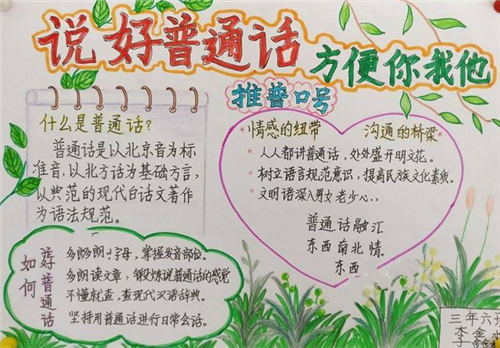 说好普通话
方便你我他
推普口号
什么是普通话?
普通话是以北京音为标
准音,以北方话为基础方言,
以典范的现代白话文著作
为语法规范。
情感的纽带 沟通的桥梁
· 人人都讲普通话,处处盛开明文花。
· 树立语言规范意识,提高民族文化素质。
· 文明语深入男女老少心、、
普通话融汇
东西南北情
东西
如何
说好普通话
多朗朗上字母,掌握发音部位。
多朗读文章,锻炼说普通话的感觉
不懂就查,查现代汉语辞典。
坚持用普通话进行日常会话。
三年六班
李金